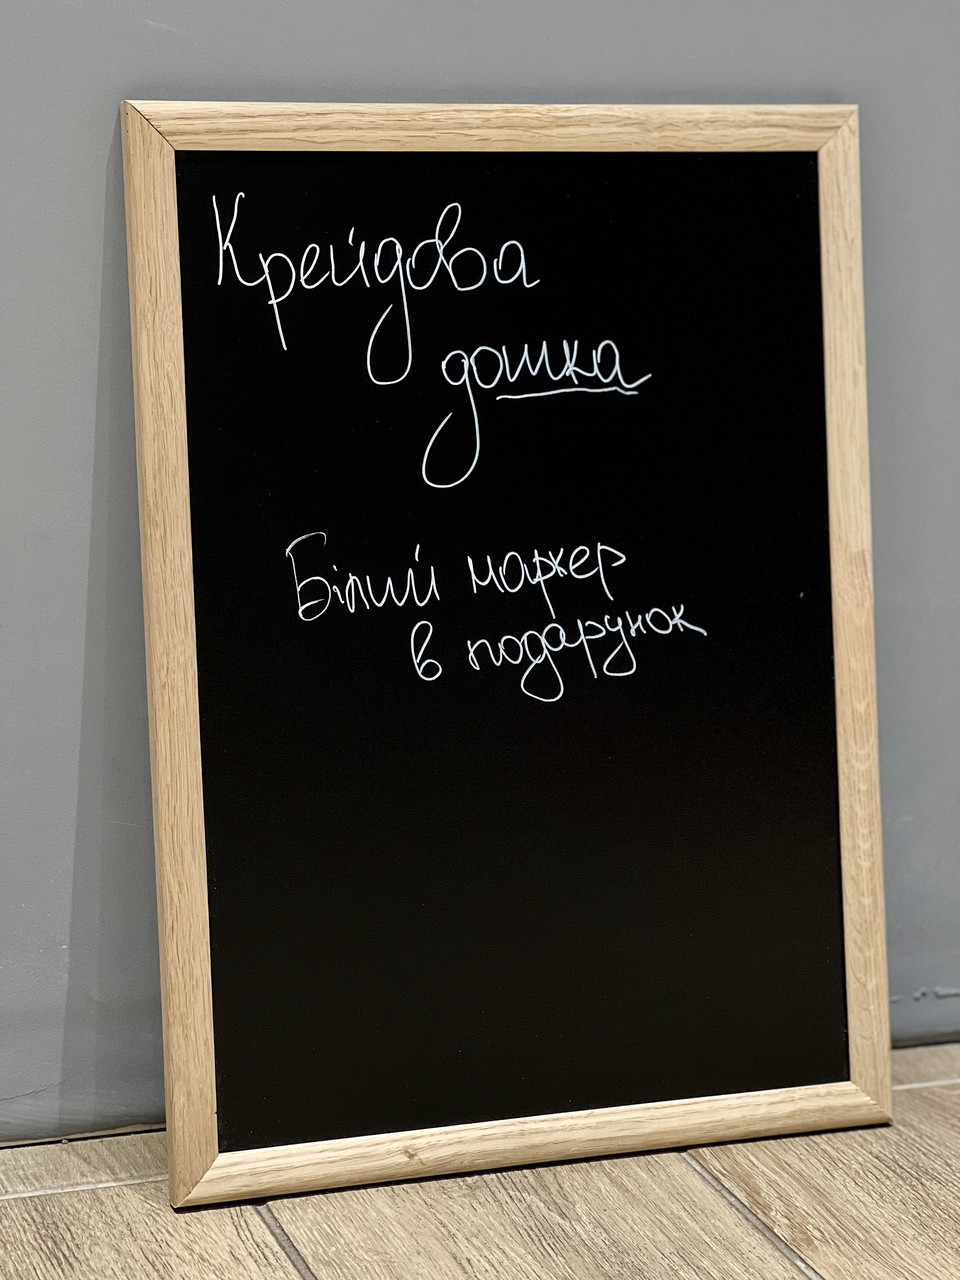 Крейдова
дошка
Білий маркер
в подарунок